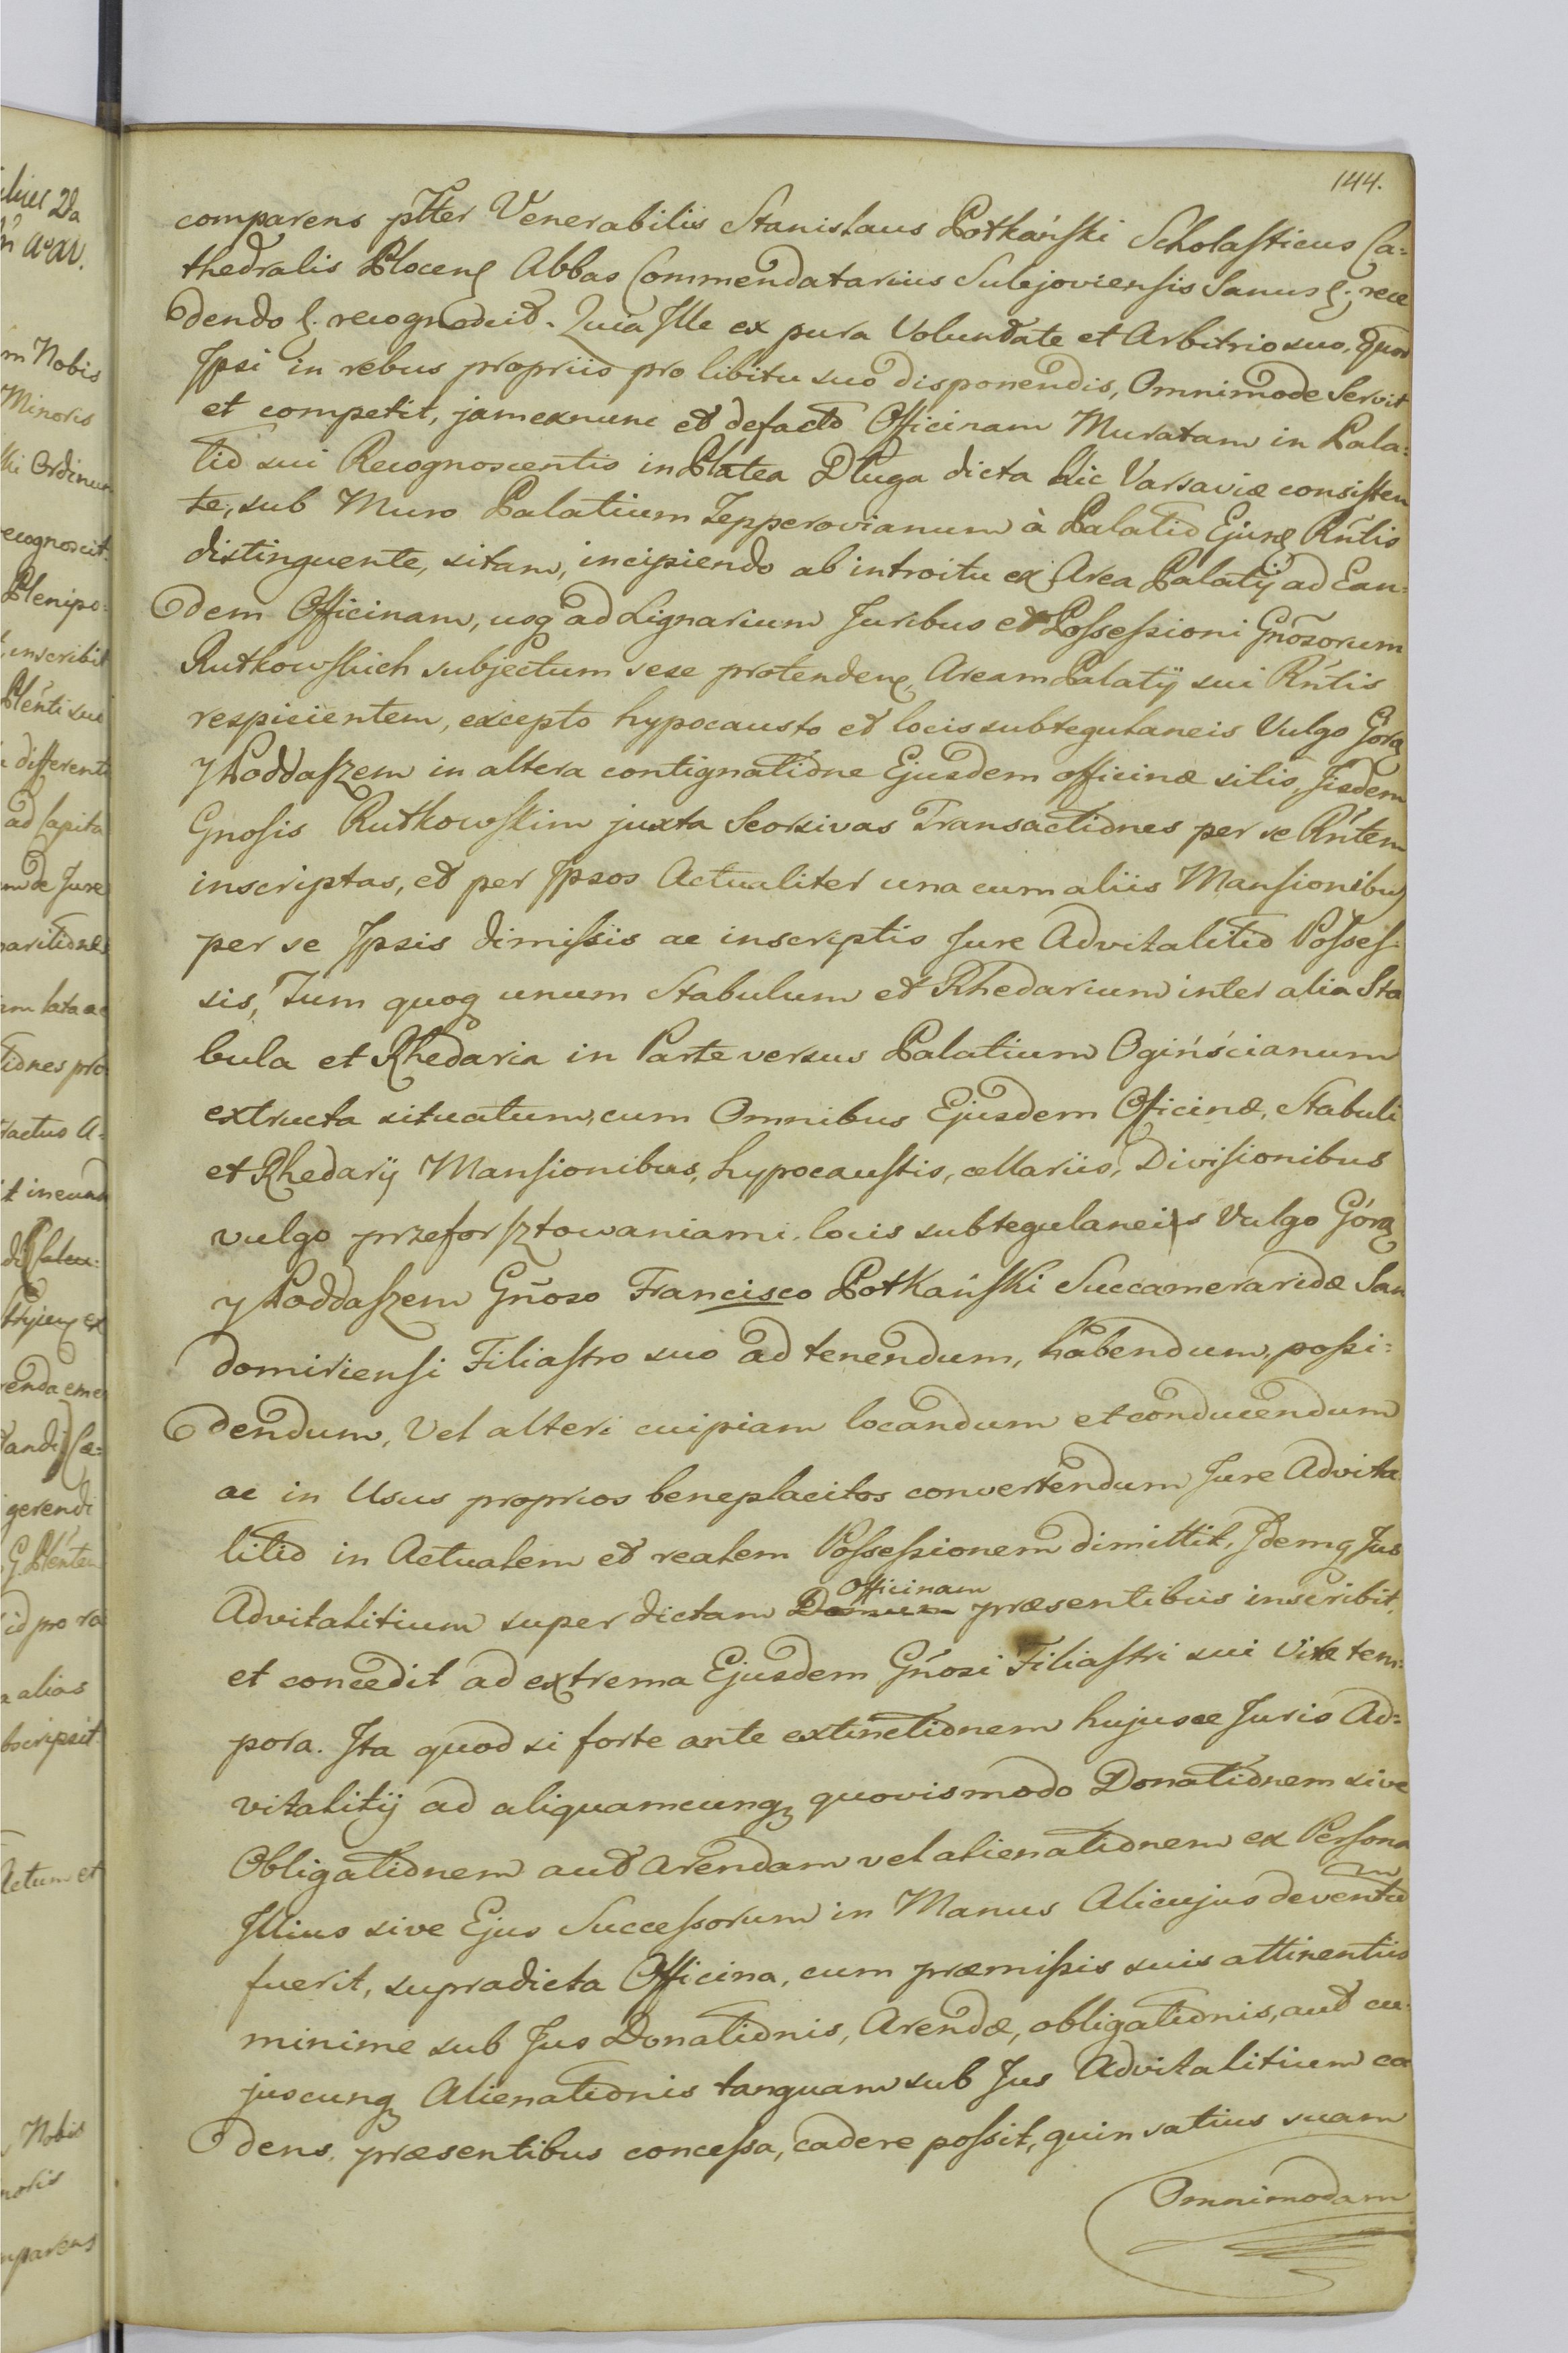 144.
comparens pltter Venerabilis Stanislaus Potkański Scholasticus Ca=
thedralis Plocenȩ Abbas Commendatarius Sulejoviensis Sanus ȩ. rece
dendo ȩ. recognoscit. Quia Ille ex pura Voluntate et Arbitrio suo, quod
Ipsi in rebus propriis pro libitu suo disponendis, Omnimode Servit
et competit, jam exnunc et defacto Officinam Muratam in Pala=
tio sui Recognoscentis in Platea Długa dicta hic Varsaviæ consisten
te, sub Muro Palatium Tepperovianum à Palatio Ejusȩ Rñtis
distinguente, sitam, incipiendo ab introitu ex Area Palatij ad Ean=
dem Officinam, usq ad Lignarium Juribus et Possessioni Gñosorum
Rutkowskich subjectum sese protendenȩ, Aream Palatij sui Rñtis
respicientem, excepto hypocausto et locis subtegulaneis Vulgo Górą
y Poddaszem in altera contignatione Ejusdem officinæ sitis, Iisdem
Gnosis Rutkowskim juxta Seorsivas Transactiones per se Rñtem
inscriptas, et per Ipsos Actualiter una cum aliis Mansionibus
per se Ipsis dimissis ac inscriptis Jure Advitalitio Posses=
sis, Tum quoq unum Stabulum et Rhedarium inter alia Sta
bula et Rhedaria in Parte versus Palatium Ogińścianum
extructa situatum, cum Omnibus Ejusdem Officinæ, Stabuli
et Rhedarij Mansionibus, hypocaustis, cellariis, Divisionibus
vulgo przeforsztowaniami, locis subtegulaneis Vulgo Górą
y Poddaszem Gñoso Francisco Potkański Succameraridæ San
domiriensi Filiastro suo ad tenendum, habendum, possi=
dendum, Vel alteri cuipiam locandum et conducendum
ac in Usus proprios beneplacitos convertendum Jure Advita
litio in Actualem et realem Possessionem dimittit, Idemq Jus
Officinam
Advitalitium super dictam Domum præsentibus inscribit,
et concedit ad extrema Ejusdem Gñosi Filiastri sui Vitæ tem=
pora. Ita quod si forte ante extinctionem hujusce Juris Ad=
vitalitij ad aliquamcunq quovismodo Donationem sive
Obligationem aut Arendam vel alienationem ex Persona
Illius sive Ejus Successorum in Manus Alicujus deventum
fuerit, supradicta Officina, cum præmissis suis attinentiis
minime sub Jus Donationis, Arendæ, obligationis, aut cu=
juscunq Alienationis tanquam sub Jus Advitalitium ca
dens, præsentibus concessa, cadere possit, quin satius suam
Omnimodam